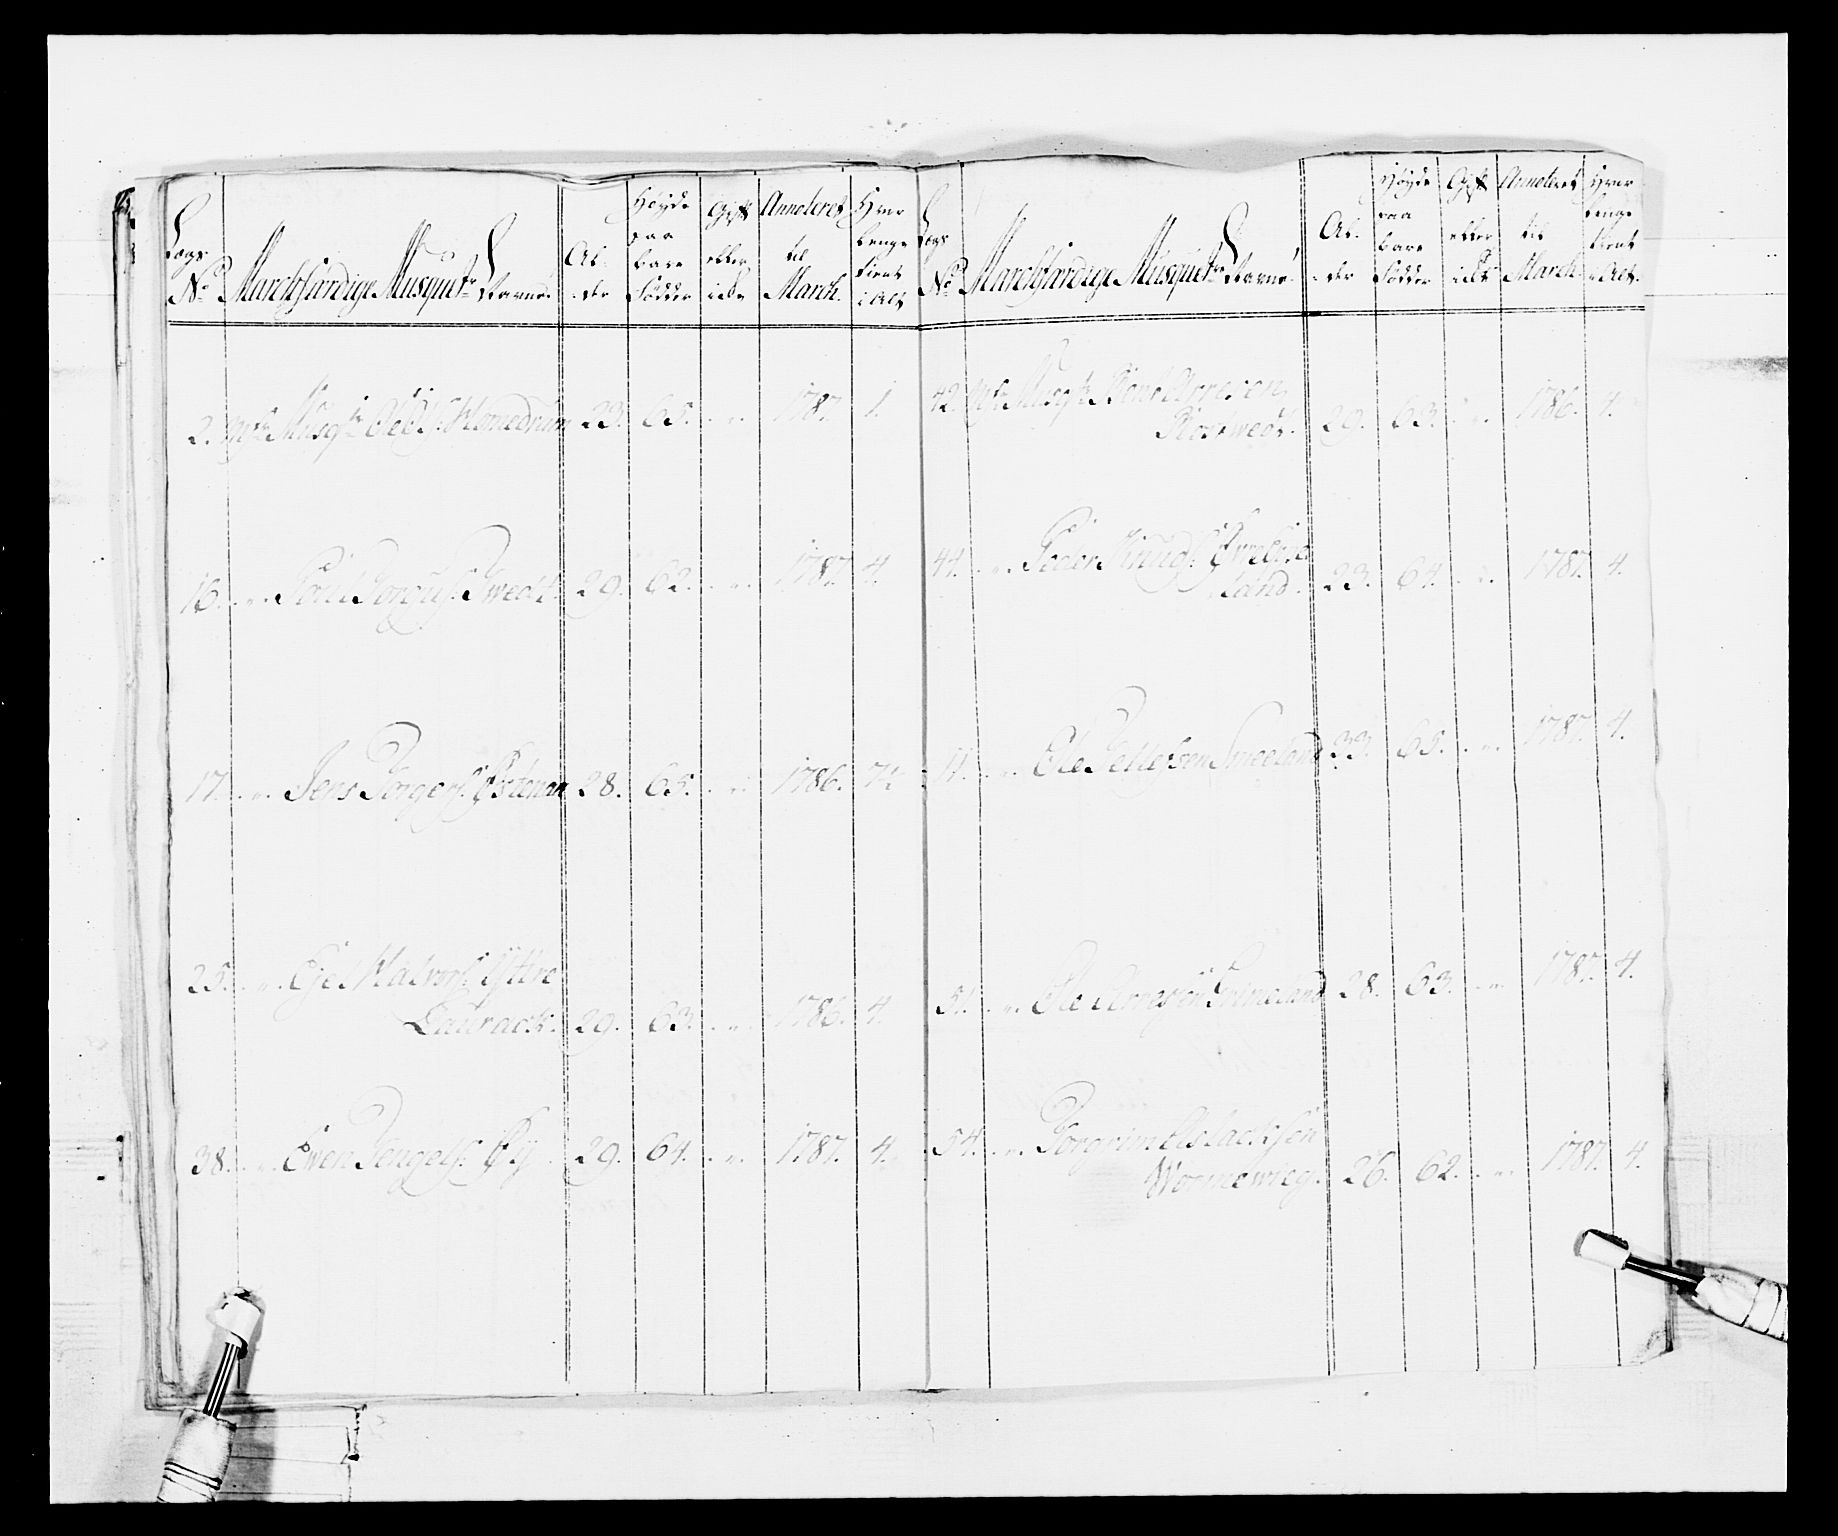 Lægs
No
Marchfärdige Musquetr Navne.
Al-
-der
Høyde
paa
bare
Födder
Gift
eller
ikke
Annoteret
til
March.
Hvor
lenge
tient
i Alt
2. Mfr Musqtr Ole O: Homedrum 23. 65. 1787. 1.
16. Poul Torgus: Twedt. 29. 62. 1787. 4.
17. Jens Torgers: Östenaa 28. 65. 1786. 7½
25. Ejel Halvors: Yttre
Laurack. 29. 63. 1786. 4.
38. Even Tengels: Øÿ 29. 64. 1787. 4.
Lægs
No
Marchfärdige Musquetr Navne.
Al-
-der
Høyde
paa
bare
Födder
Gift
eller
ikke
Annoteret
til
March
Hvor
lenge
tient
i Alt.
42. Mfr Musqtr Arresen
Rostwedt. 29. 63. 1786. 4.
44. Peder Knuds:
land. 23. 64. 1787. 4.
Ole Tellefsen Smeeland 33. 65. 1787. 4.
51. Ole Arresen Grimeland 28. 63. 1787. 4.
54. Torgrim Aslacksen
Wormewieg. 26. 62. 1787. 4.